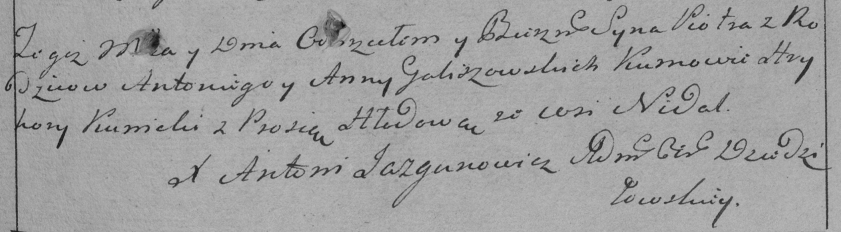 Tegoż Mca y Dnia Ochrzciłem y Bierzm Syna Piotra z Ro
dzicow Antoniego y Anny Galiszowskich Kumowie Hry
hory Kunicki z Prosią Hłedową ze wsi Nidal.
X Antoni Jazgunowicz Adm Cer Dziedzi
łowskiey.